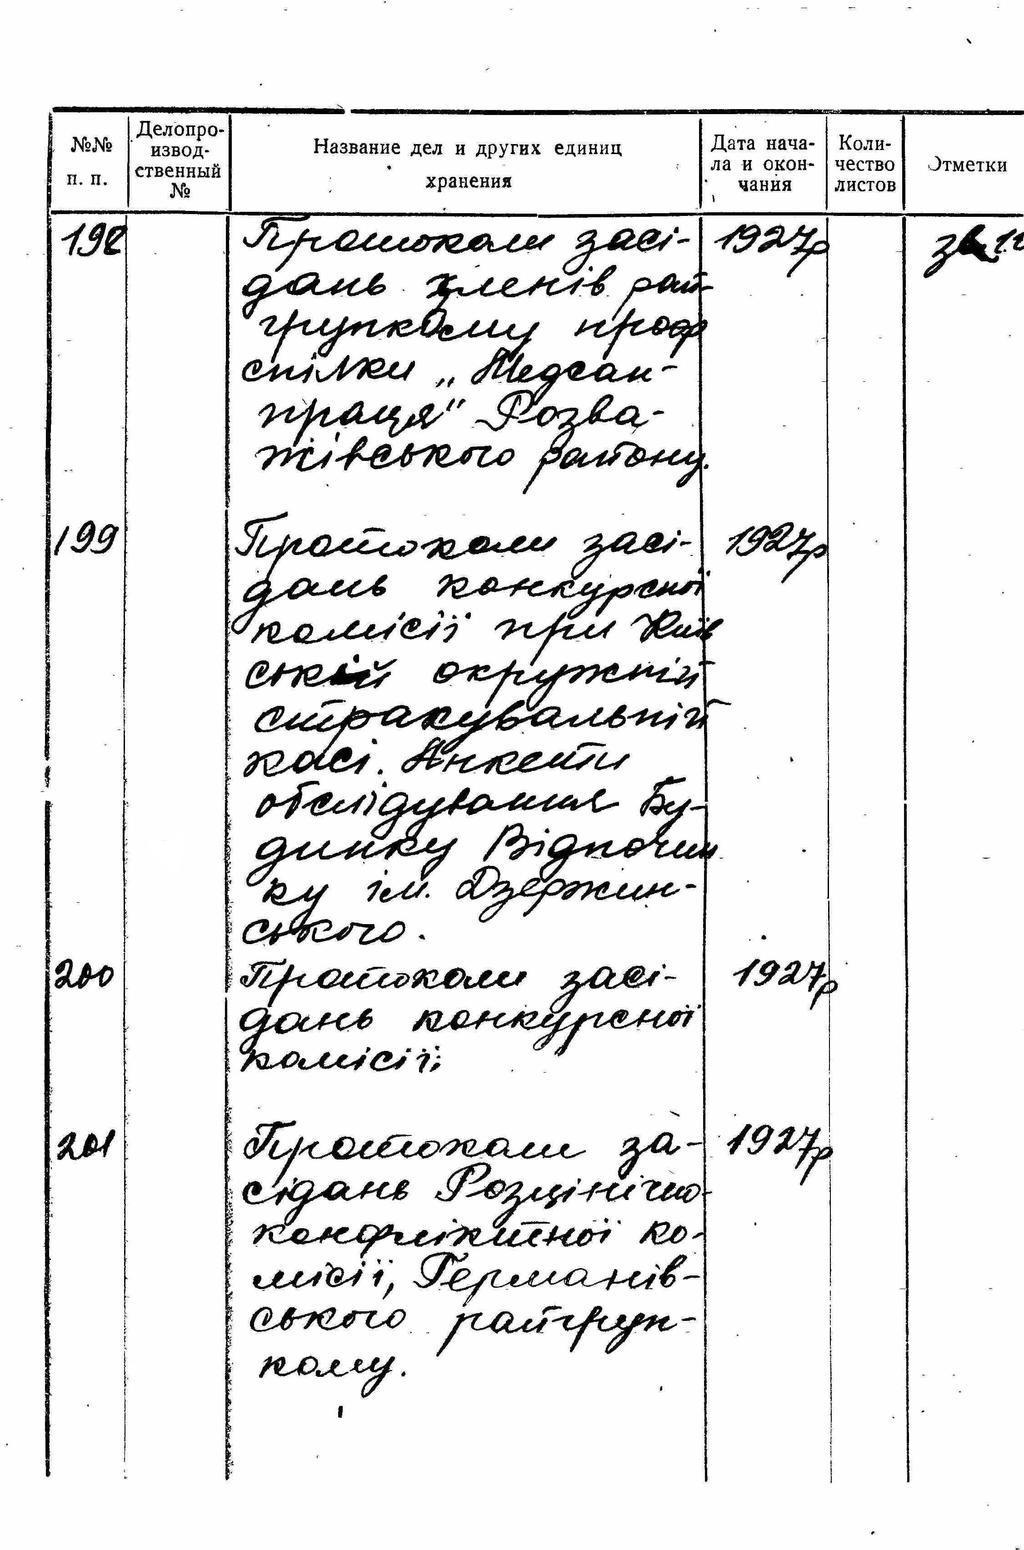 №№ п. п.
Делопро-
извод-
ственный
№
Название дел и других единиц
хранения
Дата нача-
ла и окон-
чания
Коли-
чество
листов
Отметки
198
Протоколи засі-
дань членів рай-
групкому проф
спілки „Медсан-
праця" Розва-
жівського району.
1927р
199
Протоколи засі-
дань конкурсної
комісії при Київ
ській окружній
страхувальній
касі. Анкети
обслідування Бу-
динку Відпочин
ку ім. Дзержин-
ського.
1927р
200
Протоколи засі-
дань конкурсної
комісії;
1927р
201
Протоколи за-
сідань Розцінічно-
конфліктної ко-
місії, Германів-
ського райгруп-
кому.
1927р